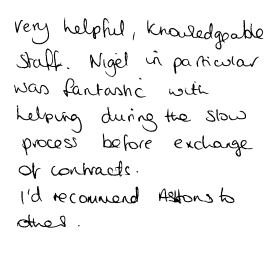 Very helpful, knowledgeable
staff. Nigel in particular
was fantastic with
helping during the slow
process before exchange
of contracts.
I'd recommend Ashtons to
others.